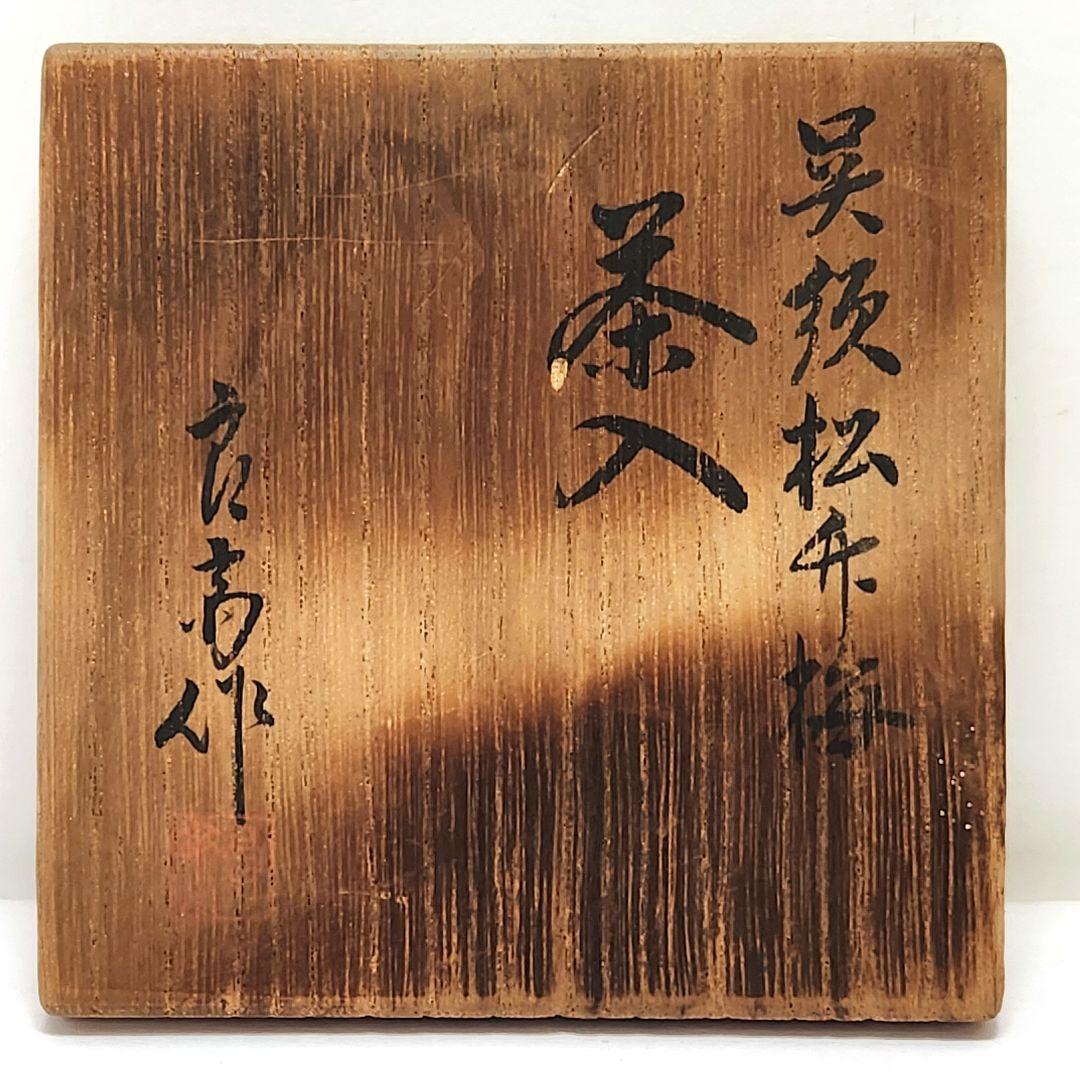 呉須松竹梅
茶入
良斎作